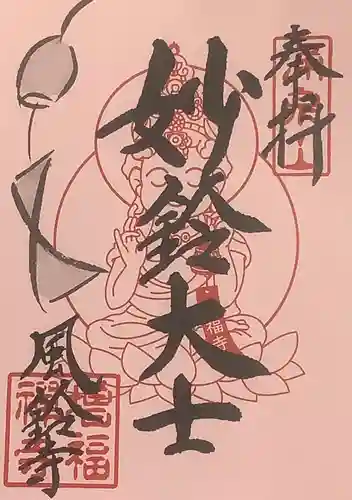 奉拝
妙鈴大士
福寺
風鈴寺